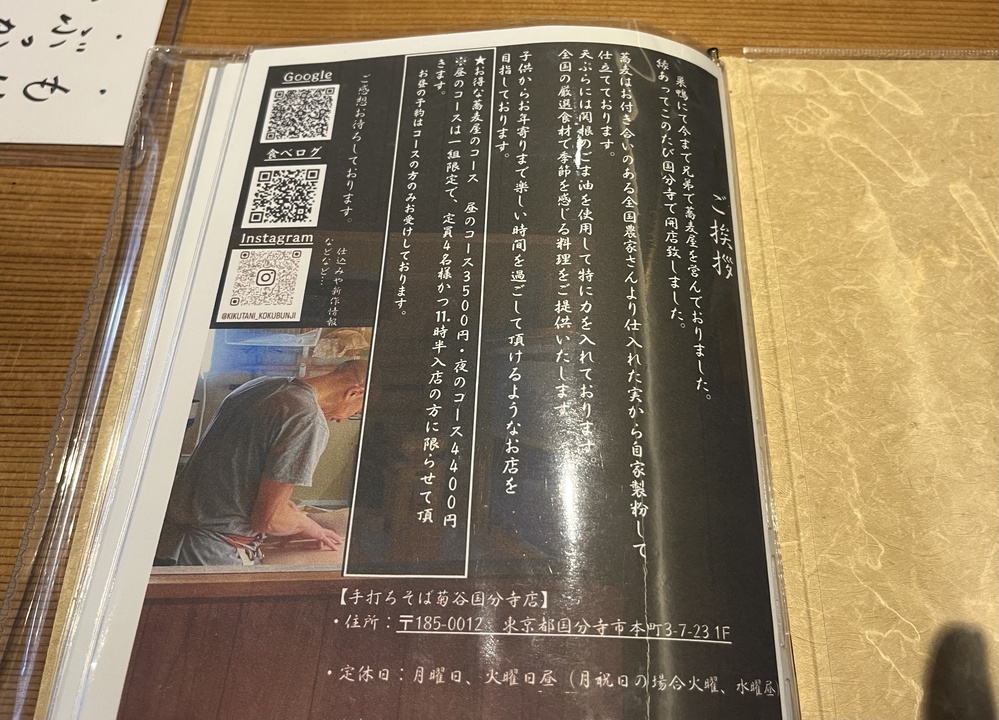 ご挨拶
巣鴨にて今まで兄弟で蕎麦屋を営んでおりました。
縁あってこのたび国分寺で開店致しました。
蕎麦はお付き合いのある全国農家さんより仕入れた実から自家製粉して
仕立ております。
天ぷらには関根のごま油を使用して特に力を入れております。
全国の厳選食材で季節を感じる料理をご提供いたします。
子供からお年寄りまで楽しい時間を過ごして頂けるようなお店を
目指しております。
★お得な蕎麦屋のコース 昼のコース3500円・夜のコース4400円
※昼のコースは一組限定で、定員4名様かつ11時半入店の方に限らせて頂
きます。
お昼の予約はコースの方のみお受けしております。
ご感想お待ちしております。
Google
食べログ
Instagram
仕込みや新作情報
などなど…
@KIKUTANI_KOKUBUNJI
【手打ちそば菊谷国分寺店】
・住所：〒185-0012 東京都国分寺市本町3-7-23 1F
・定休日：月曜日、火曜日昼（月祝日の場合火曜、水曜昼）